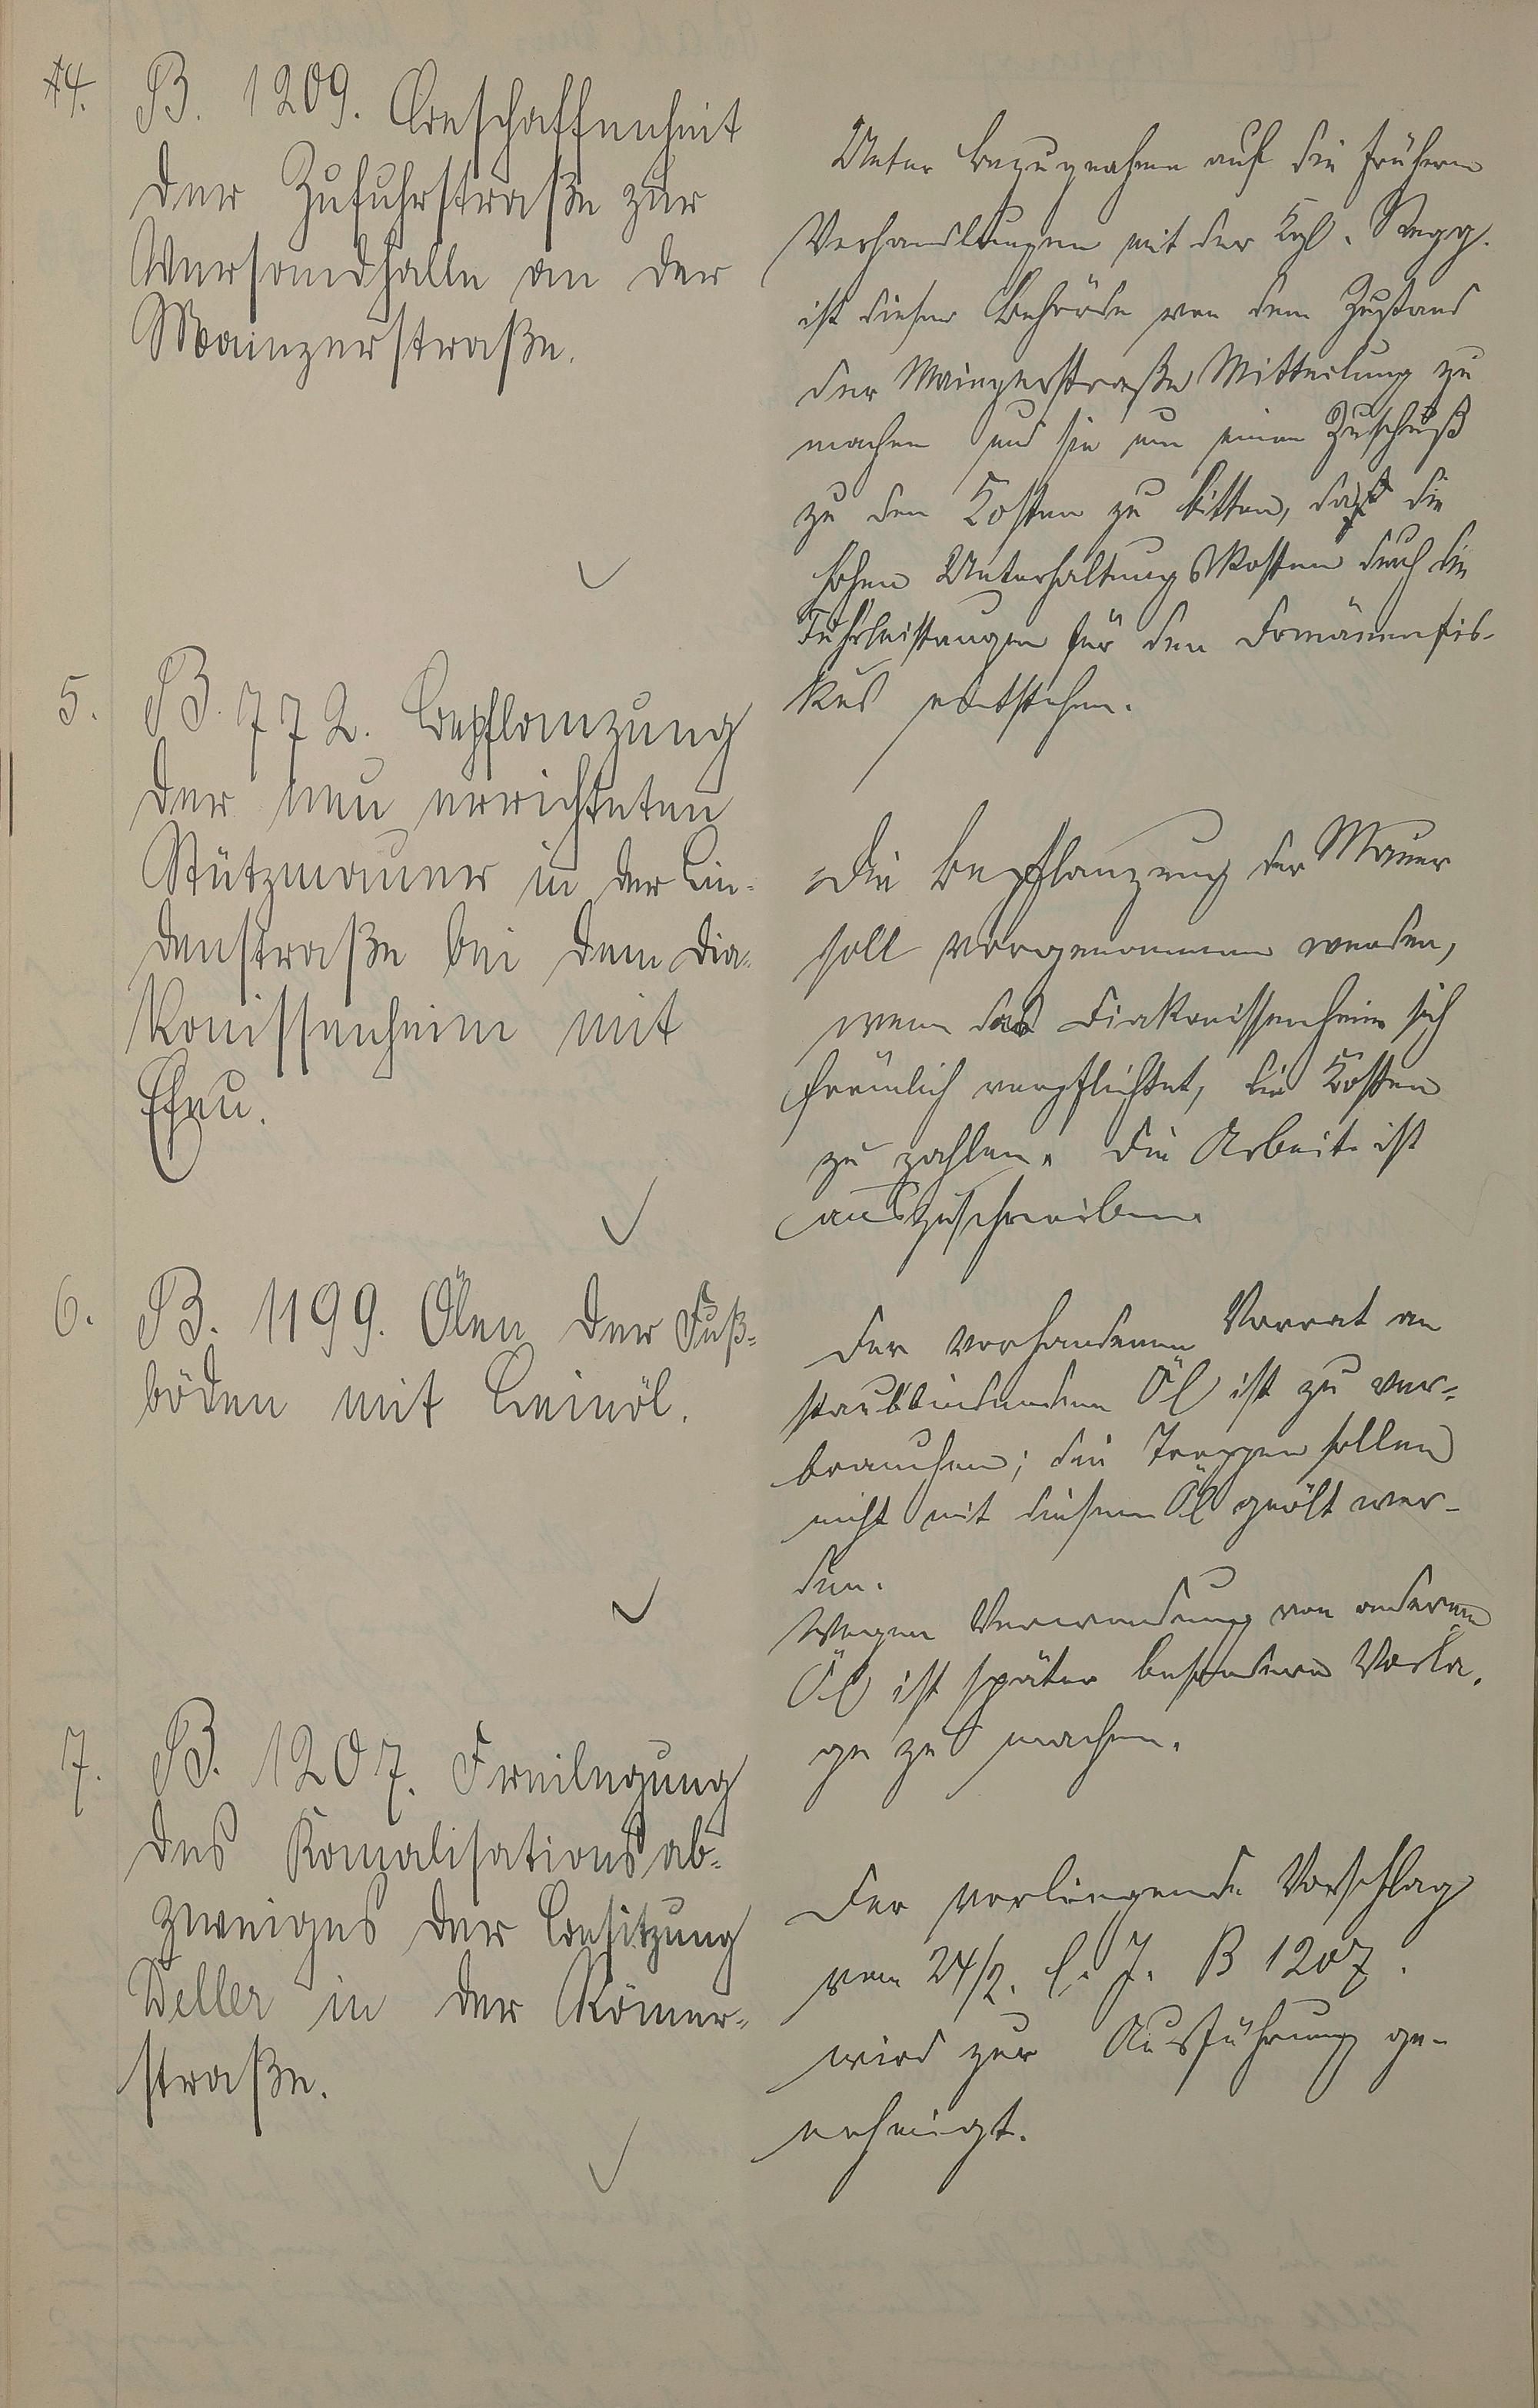 4.
B. 1209. Beschaffenheit
der Zufuhrstraße zur
Versandhalle an der
Mainzerstraße.
Unter Bezugnahme auf die frühern
Verhandlungen mit der Kgl. Regg.
ist dieser Behörde von dem Zustand
der Mainzerstraße Mitteilung zu
machen und sie um einen Zuschuß
zu den Kosten zu bitten, da die
hohen Unterhaltungskosten durch die
Fuhrleistungen für den Domänenfis-
kus entstehen.
5.
B. 772. Bepflanzung
der neu errichteten
Stützmauer in der Lin-
denstraße bei dem Dia-
konissenheim mit
Efeu.
Die Bepflanzung der Mauer
soll vorgenommen werden,
wenn das Diakonissenheim sich
förmlich verpflichtet, die Kosten
zu zahlen. Die Arbeit ist
auszuschreiben.
6.
B. 1199. Ölen der Fuß-
böden mit Leinöl.
Der vorhandenen Vorrat an
staubbindendem Öl ist zu ver-
brauchen; die Treppen sollen
nicht mit diesem Öl geölt wer-
den.
Wegen Verwendung von anderem
Öl ist später besondere Vorla-
ge zu machen.
7.
B. 1207. Freilegung
des Kanalisationsab-
zweiges der Besitzung
Deller in der Römer-
straße.
Der vorliegende Vorschlag
vom 24/2. l. J. B 1207.
wird zur Ausführung ge-
nehmigt.